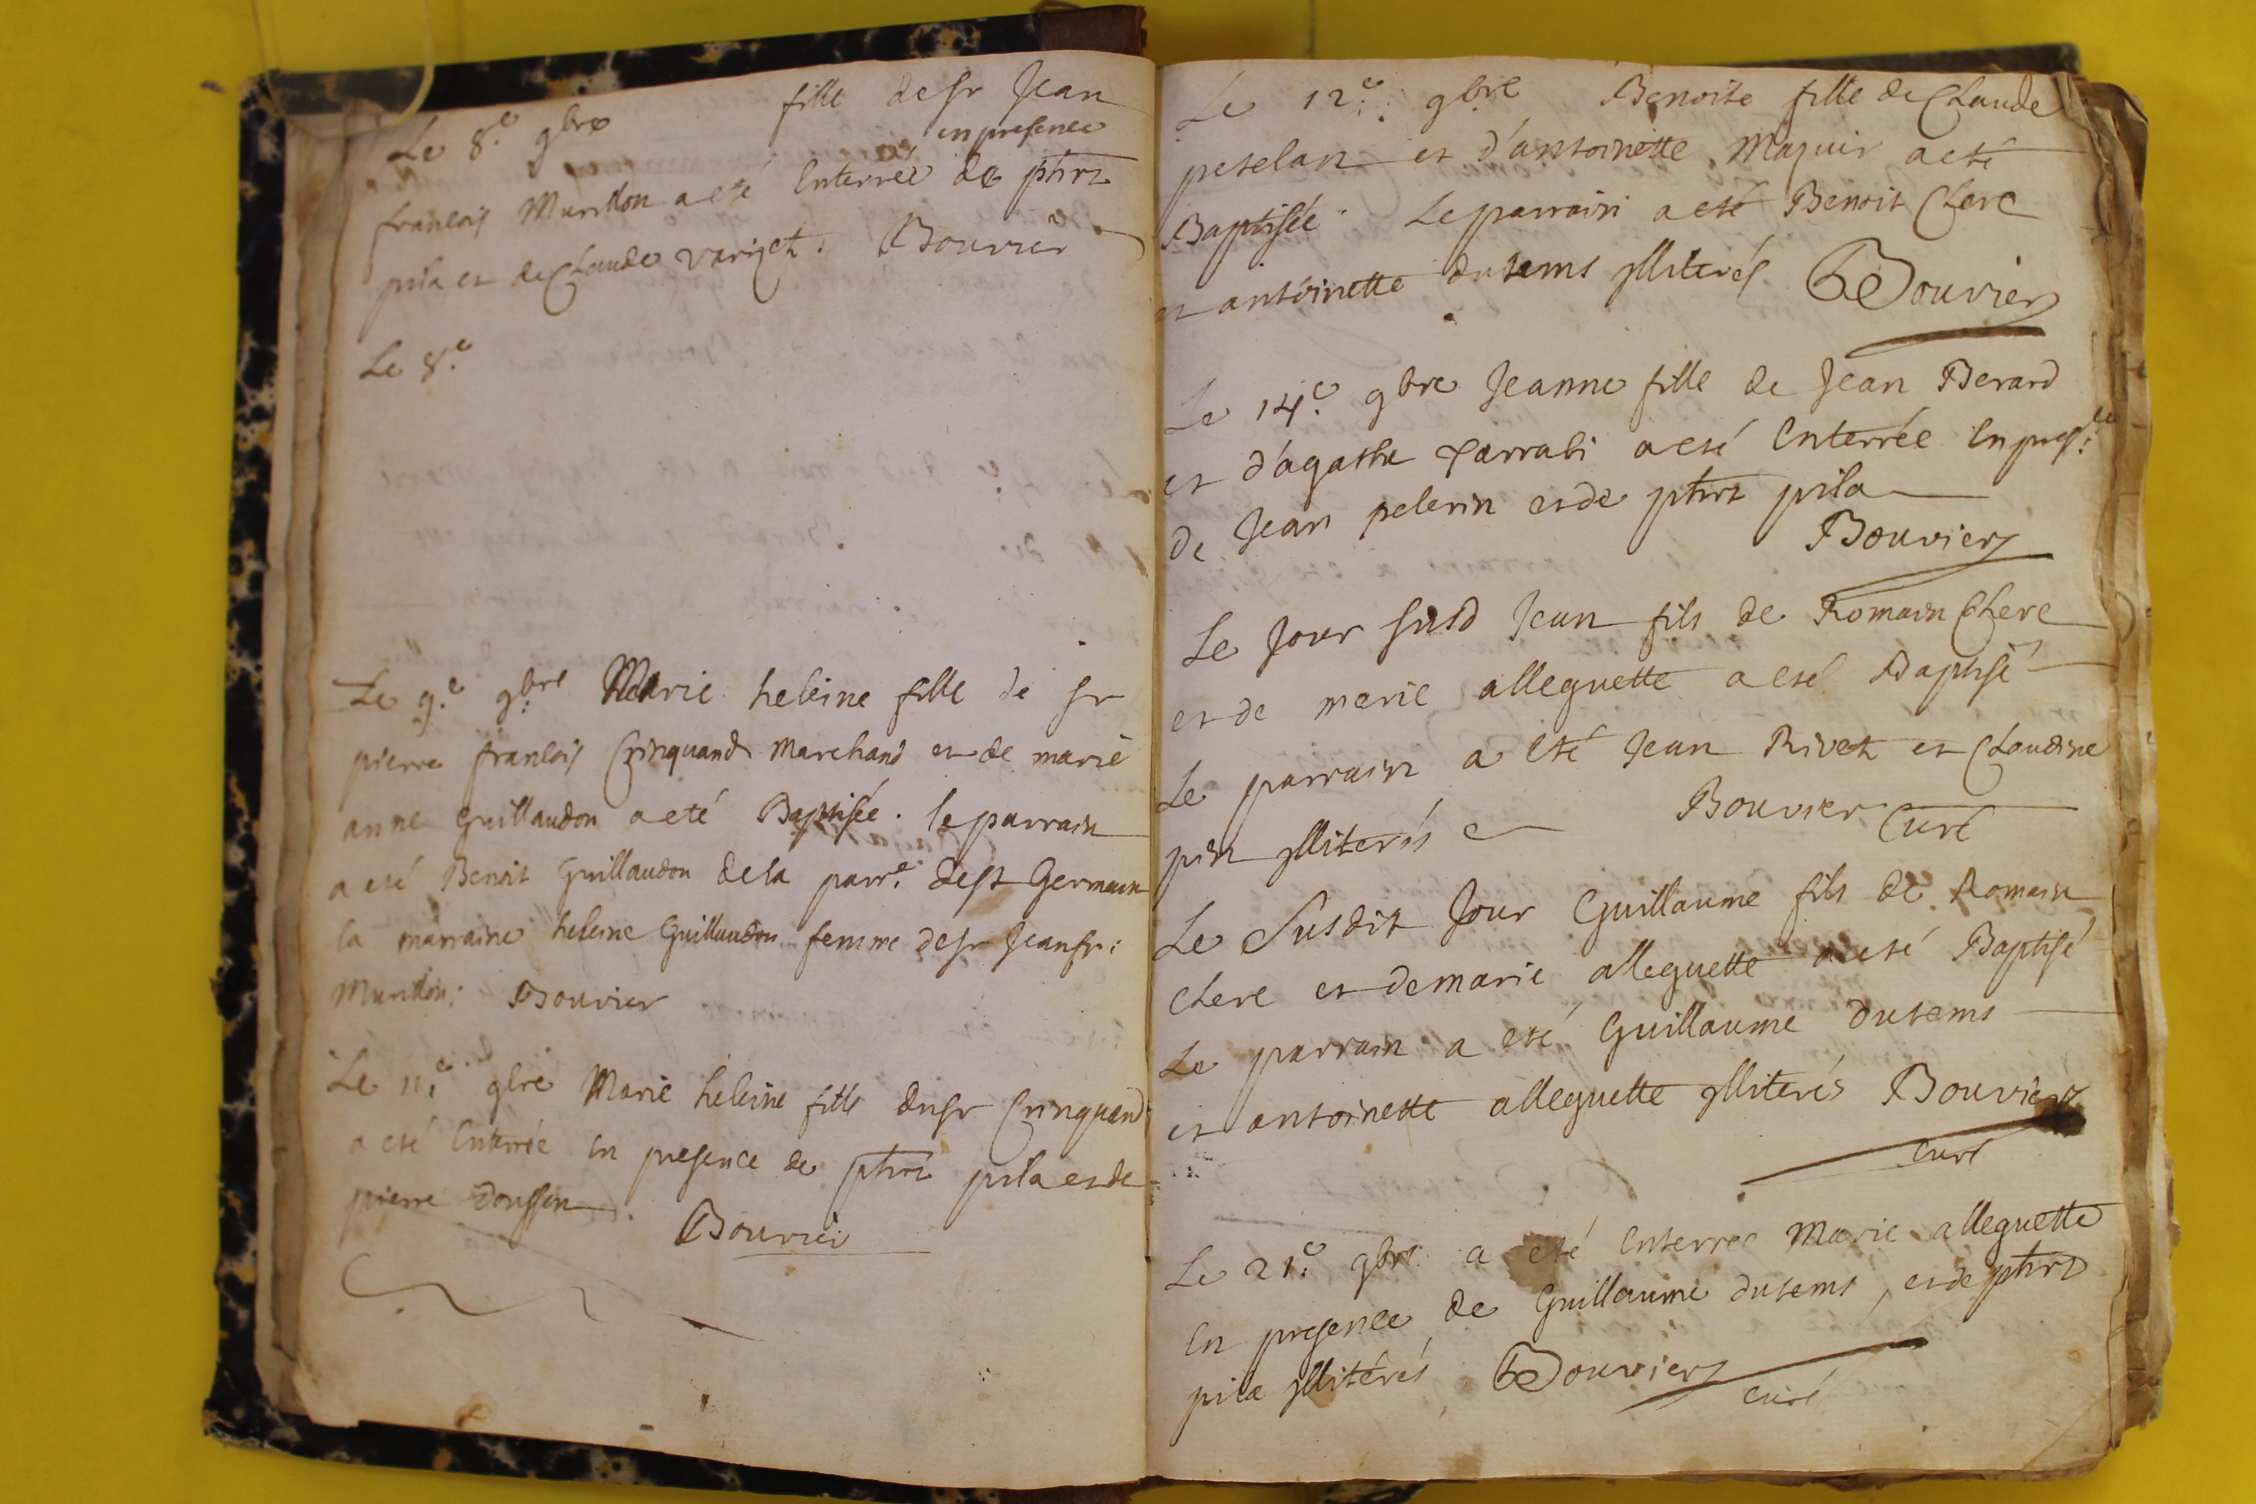 Le 8.e 9bre fille de sr Jean
en presence
francois Murillon a eté Enterrée de phrt
pila et de Claude variget. Bouvier
Le 8.e
Le 9.e 9bre Marie heleine fille de sr
pierre francois Crinquand Marchand et de marie
anne Guillaudon a eté Baptisée. le parrain
a eté Benoit Guillaudon de la parr.e de st Germain
la marraine heleine Guillaudon femme de sr Jean fr:
Murillon: Bouvier
Le 11.e 9bre Marie heleine fille du sr Crinquand
a eté Enterrée En presence de phrt pila et de
pierre Doussin. Bouvier
Le 12.e 9bre Benoite fille de Claude
petelan et d'antoinette Maquir a eté
Baptisée. Le parrain a eté Benoit Clerc
et antoinette dutems illiterés Bouvier
Le 14.e 9bre Jeanne fille de Jean Berard
et d'agathe Parrabi a eté Enterrée En pres.ce
de Jean pelerin et de phrt pila
Bouvier
Le Jour susd Jean fils de Romain Clerc
et de marie alleguette a eté Baptisé
Le parrain a eté Jean Rivet et Claudine
pin illiterés Bouvier Curé
Le Susdit Jour Guillaume fils de Romain
Clerc et de marie alleguette a eté Baptisé
Le parrain a eté Guillaume dutems
et antoinette alleguette illiterés Bouvier
curé
Le 21.e 9bre a eté Enterrée Marie alleguette
En presence de Guillaume dutems, et de phrt
pila illitérés Bouvier
curé